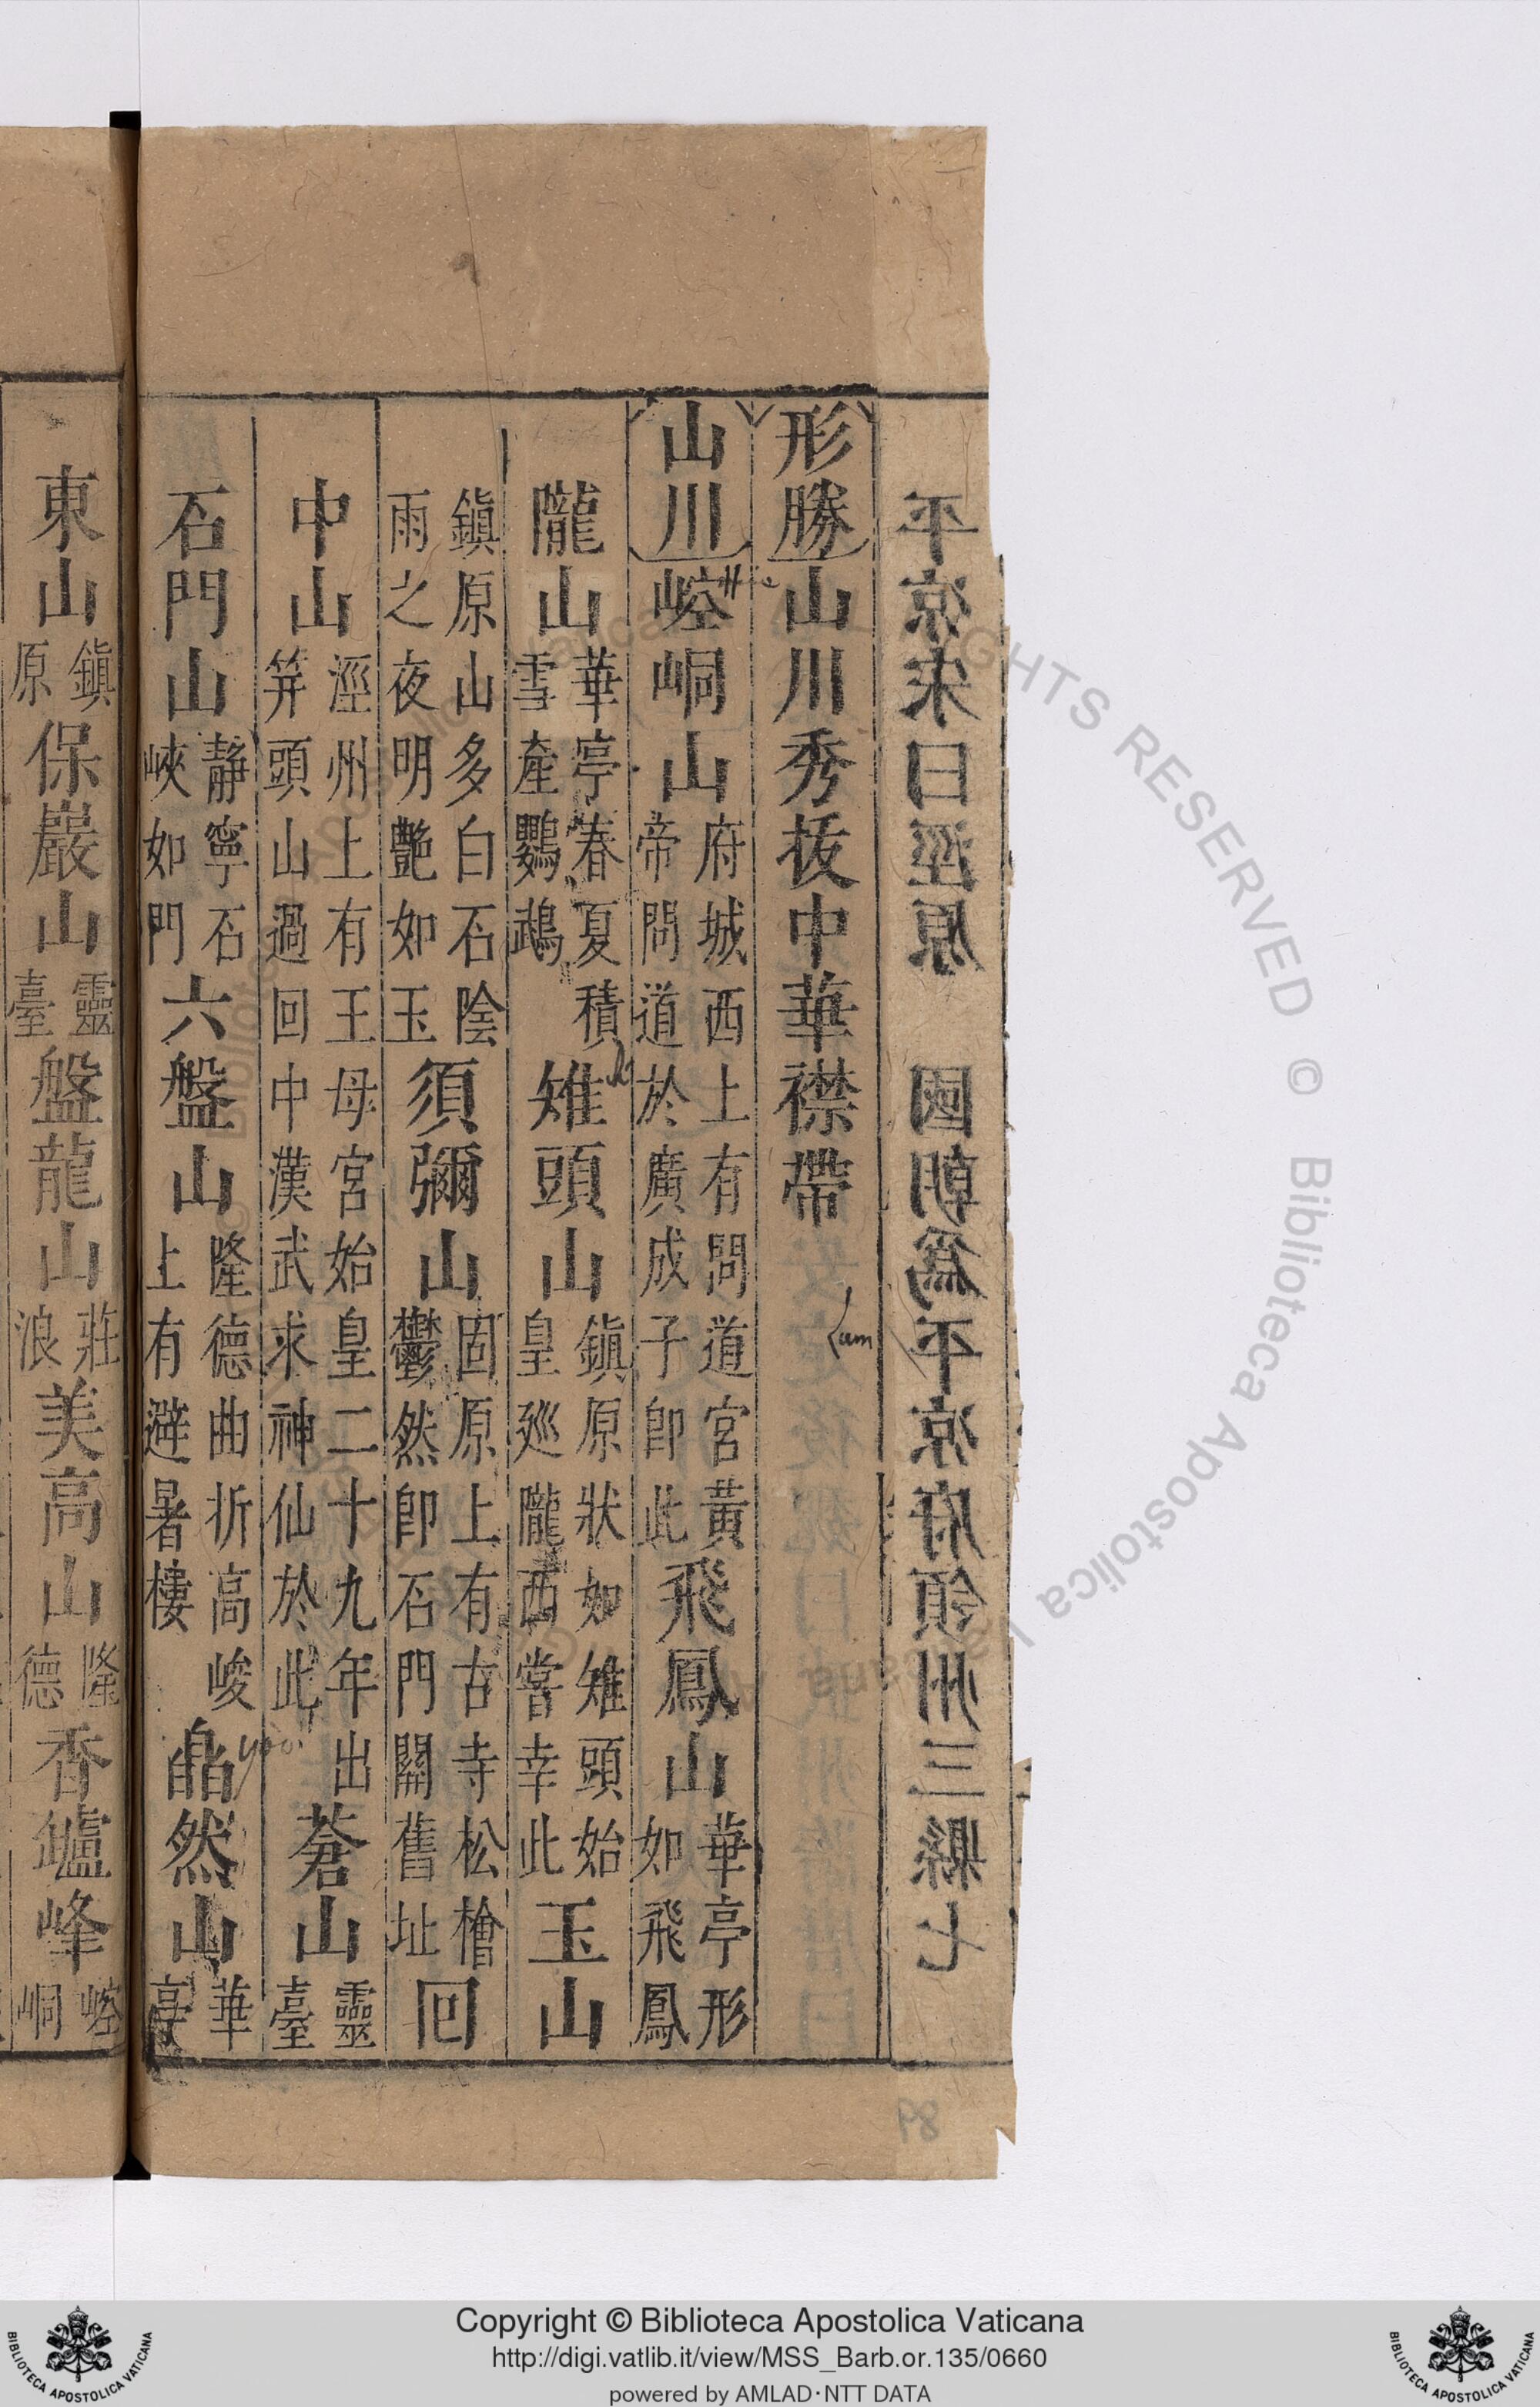 平凉宋曰涇原　國朝爲平凉府領州三縣七
形勝山川秀拔中華襟帶
山川崆峒山府城西上有問道宮黃帝問道於廣成子卽此飛鳳山華亭形如飛鳳
隴山華亭春夏積雪產鸚鵡雉頭山鎭原狀如雉頭始皇廵隴西嘗幸此玉山
鎭原山多白石陰雨之夜明艷如玉須彌山固原上有古寺松檜鬱然卽石門關舊址回
中山涇州上有王母宮始皇二十九年出笄頭山過回中漢武求神仙於此蒼山靈臺
石門山靜寧石峽如門六盤山隆德曲折高峻上有避暑樓皛然山華亭
東山鎭原保巖山靈臺盤龍山莊浪美高山隆德香鑪峰崆峒
98
Copyright © Biblioteca Apostolica Vaticana
http://digi.vatlib.it/view/MSS_Barb.or.135/0660
powered by AMLAD·NTT DATA
BIBLIOTECA APOSTOLICA VATICANA
BIBLIOTECA APOSTOLICA VATICANA